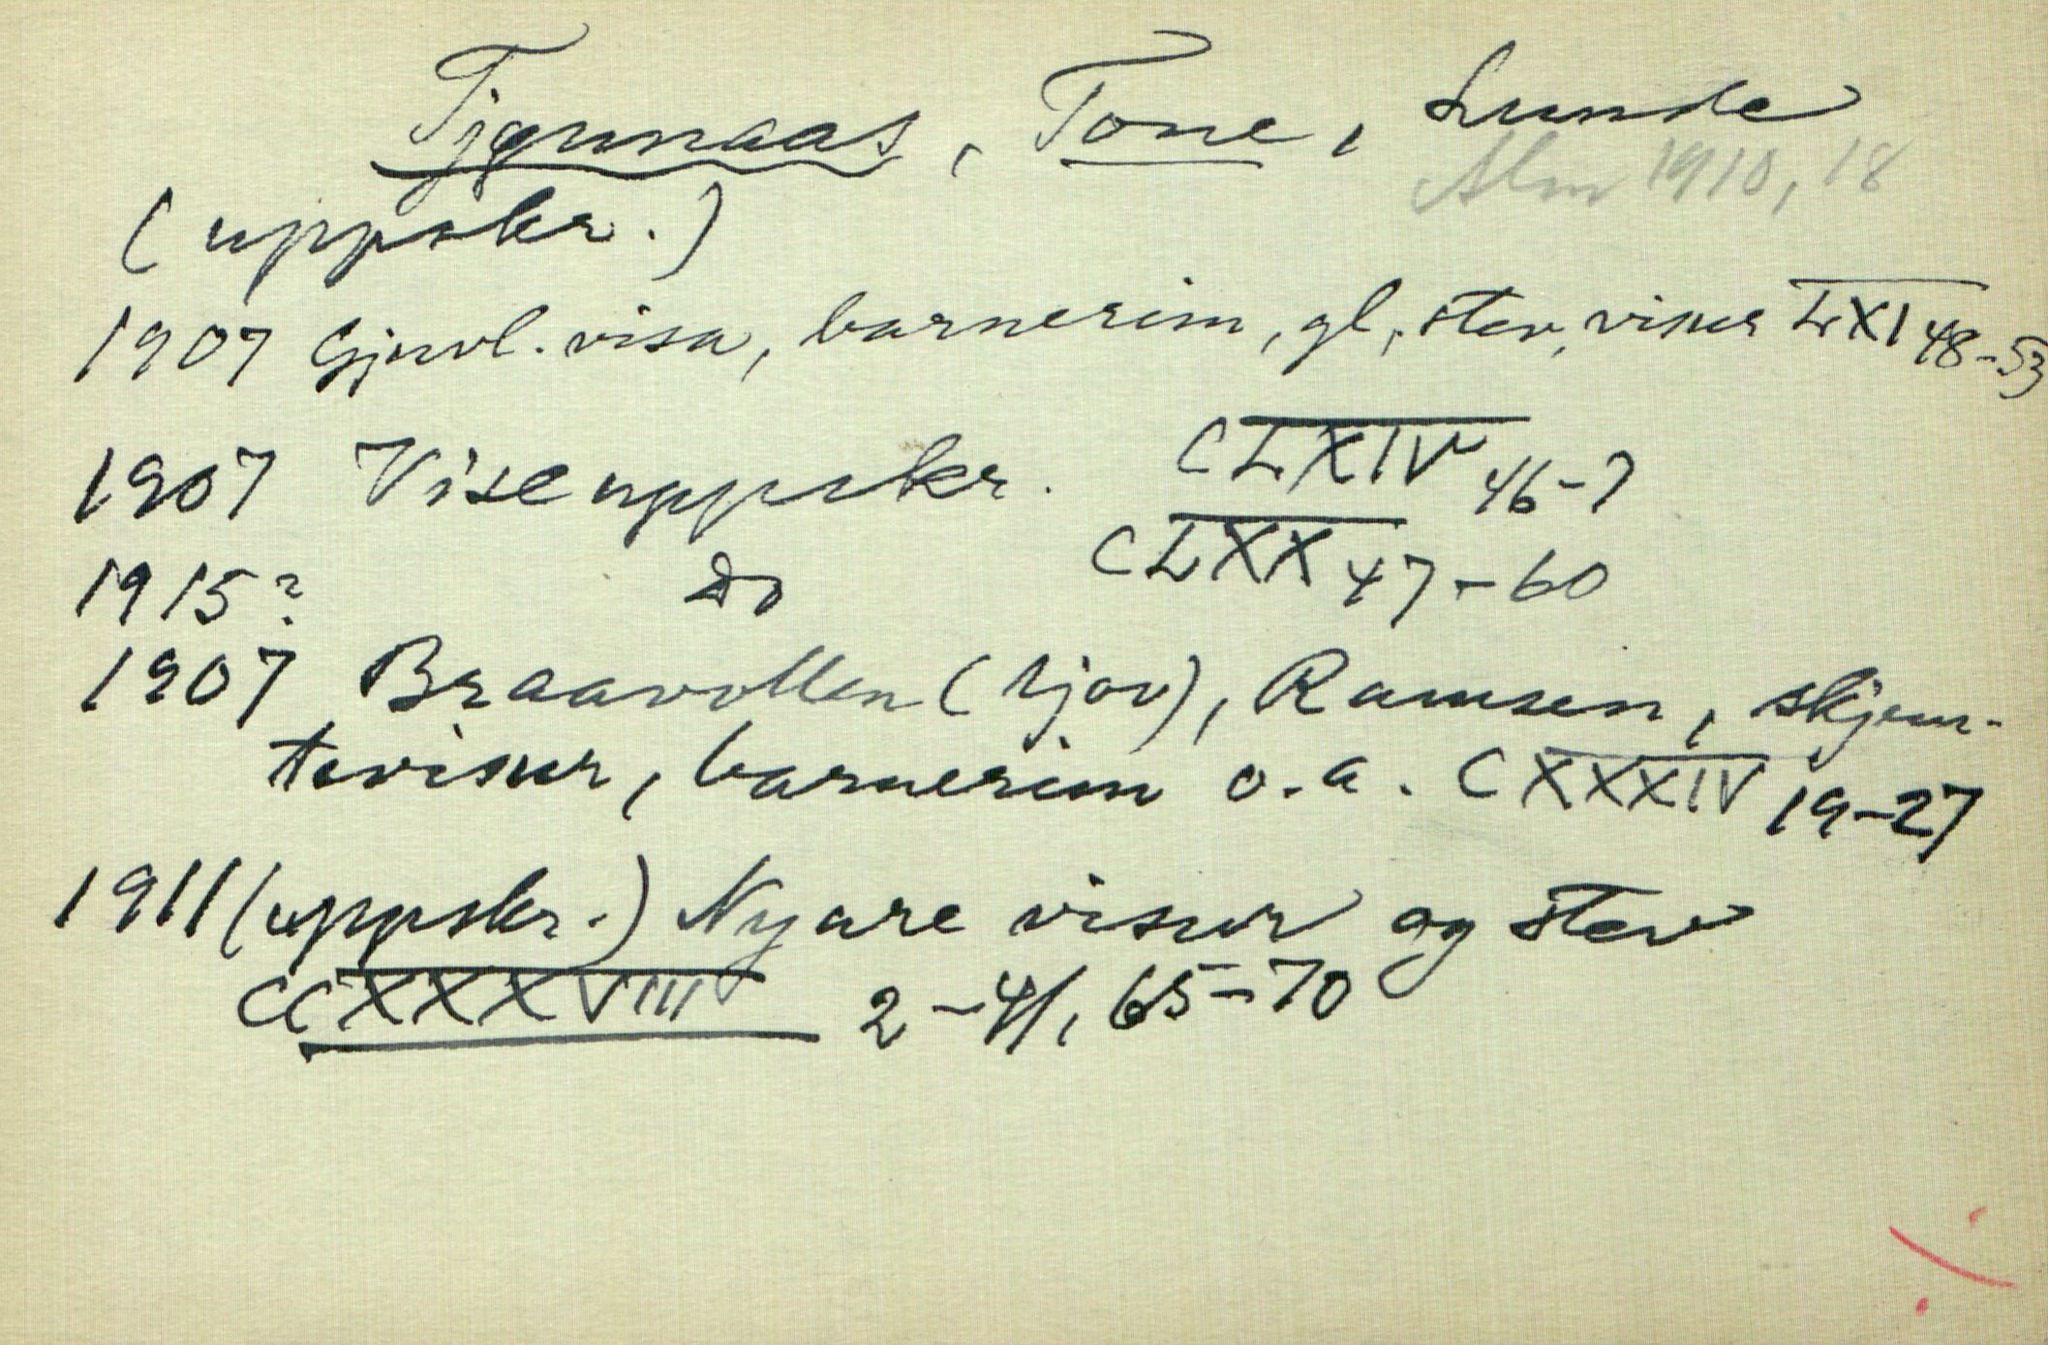 Tjønnaas, Tone, Lunde
Alm 1910, 18
(uppskr.)
1907 Gjevl. visa, barnerim, gl, stev, visur LXI 48-53
1907 Vise uppskr. CLXIV 46-7
1915? Do CLXX 47-60
1907 Braavollen (tjov), Ramsen, skjem-
tevisur, barnerim o.a. CXXXIV 19-27
1911 (uppskr.) Nyare visur og stev
CCXXXVIII 2-41, 65-70